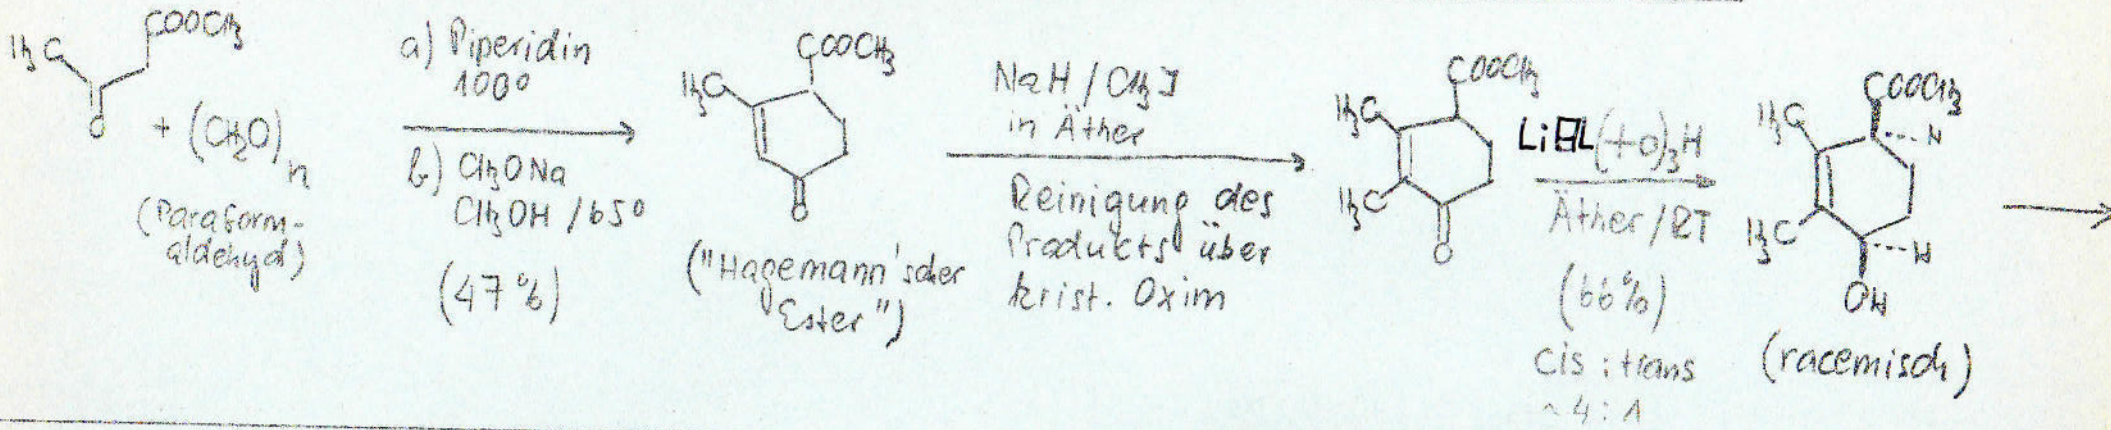 H₃C
COOCH₃
O
+ (CH₂O)n
(Paraform-
aldehyd)
a) Piperidin
100°
b) CH₃ONa
CH₃OH / 65°
(47%)
H₃C
COOCH₃
O
("Hagemann'scher
Ester")
NaH / CH₃J
in Äther
Reinigung des
Produkts über
krist. Oxim
H₃C
COOCH₃
H₃C
O
(+o)₃H
Äther / RT
(66%)
cis : trans
~ 4 : 1
H₃C
COOCH₃
H
H₃C
H
OH
(racemisch)